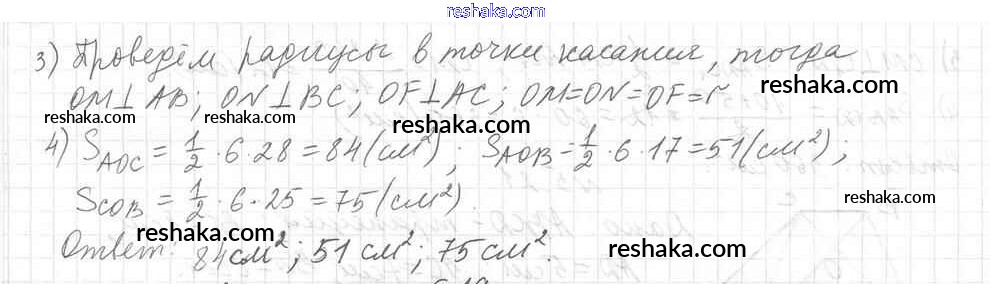 reshaka.com
3) Проведём радиусы в точки касания, тогда
reshaka.com
OM⊥AB; ON⊥BC; OF⊥AC; OM=ON=OF=r
reshaka.com reshaka.com reshaka.com
4) S_AOC = 1/2 · 6 · 28 = 84 (см²); S_AOB = 1/2 · 6 · 17 = 51 (см²);
reshaka.com
S_COB = 1/2 · 6 · 25 = 75 (см²).
reshaka.com
reshaka.com
Ответ: 84 см²; 51 см²; 75 см².
reshaka.com reshaka.com